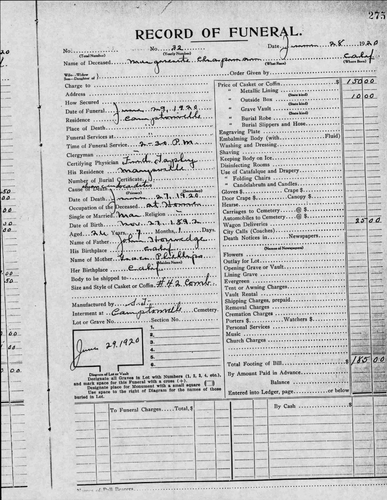 275
RECORD OF FUNERAL.
No. No. 32 Date June 28 1920
(Total Number) (Yearly Number)
Name of Deceased Marguerite Chapman Calif
(What Race) (Where Born)
Order Given by
Charge to
Address
How Secured
Date of Funeral June 29, 1920
Residence Camptonville
Place of Death
Funeral Services at
Time of Funeral Service 2-30 P.M.
Clergyman
Certifying Physician
His Residence Marysville
Number of Burial Certificate
Cause of Death
Date of Death June 27, 1920
Occupation of the Deceased at Home
Single or Married Mar Religion
Date of Birth Nov. 23. 1892
Aged Years 7 Months Days
Name of Father John
His Birthplace Calif
Name of Mother Grace Phillips
(Maiden Name)
Her Birthplace Calif
Body to be shipped to
Size and Style of Casket or Coffin #42 Comb.
Manufactured by S.F.
Interment at Camptonville Cemetery.
Lot or Grave No. Section No.
June 29, 1920
1.
2.
3.
4.
5.
6.
Diagram of Lot or Vault
Designate all Graves in Lot with Numbers (1, 2, 3, 4, etc.),
and mark space for this Funeral with a cross (+).
Designate place for Monument with a small square
Use space to the right of Diagram for the names of those
buried in Lot.
Price of Casket or Coffin $ 150 00
" Metallic Lining
(State kind)
" Outside Box 10 00
(State kind)
" Grave Vault
(State kind)
" Burial Robe
(State kind)
" Burial Slippers and Hose
Engraving Plate
Embalming Body (with Fluid)
Washing and Dressing
Shaving
Keeping Body on Ice
Disinfecting Rooms
Use of Catafalque and Drapery
" Folding Chairs
" Candelabrum and Candles
Gloves $ Crape $
Door Crape $ Canopy $
Hearse
Carriages to Cemetery @ $
Automobiles to Cemetery @ $
Wagon Deliveries 25 00
City Calls (Coaches)
Death Notices in Newspapers
(Names of Newspapers)
Flowers
Outlay for Lot
Opening Grave or Vault
Lining Grave
Evergreen
Tent or Awning Charges
Vault Rental
Shipping Charges, prepaid
Removal Charges
Cremation Charges
Porters $ Watchers $
Personal Services
Music
Church Charges
Total Footing of Bill $ 185 00
By Amount Paid in Advance
Balance
Entered into Ledger, page or below
To Funeral Charges Total, $
By Cash $